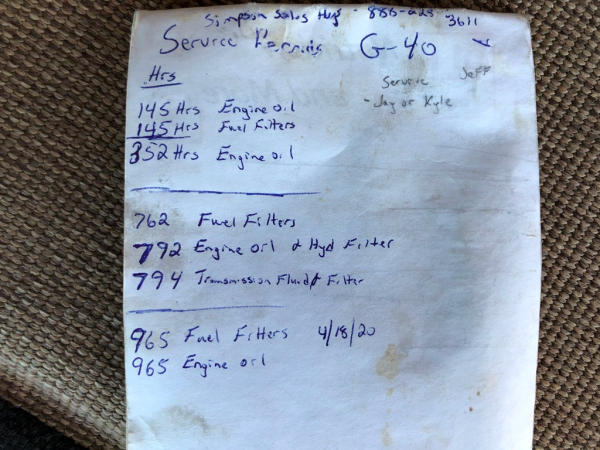 Simpson Sales Hwy - 886-a28-3611
Service G-40
Hrs
Service Jeff
- Jay or Kyle
145 Hrs Engine oil
145 Hrs Fuel Filters
352 Hrs Engine oil
762 Fuel Filters
792 Engine oil & Hyd Filter
794 Transmission Fluid & Filter
965 Fuel Filters 4/18/20
965 Engine oil